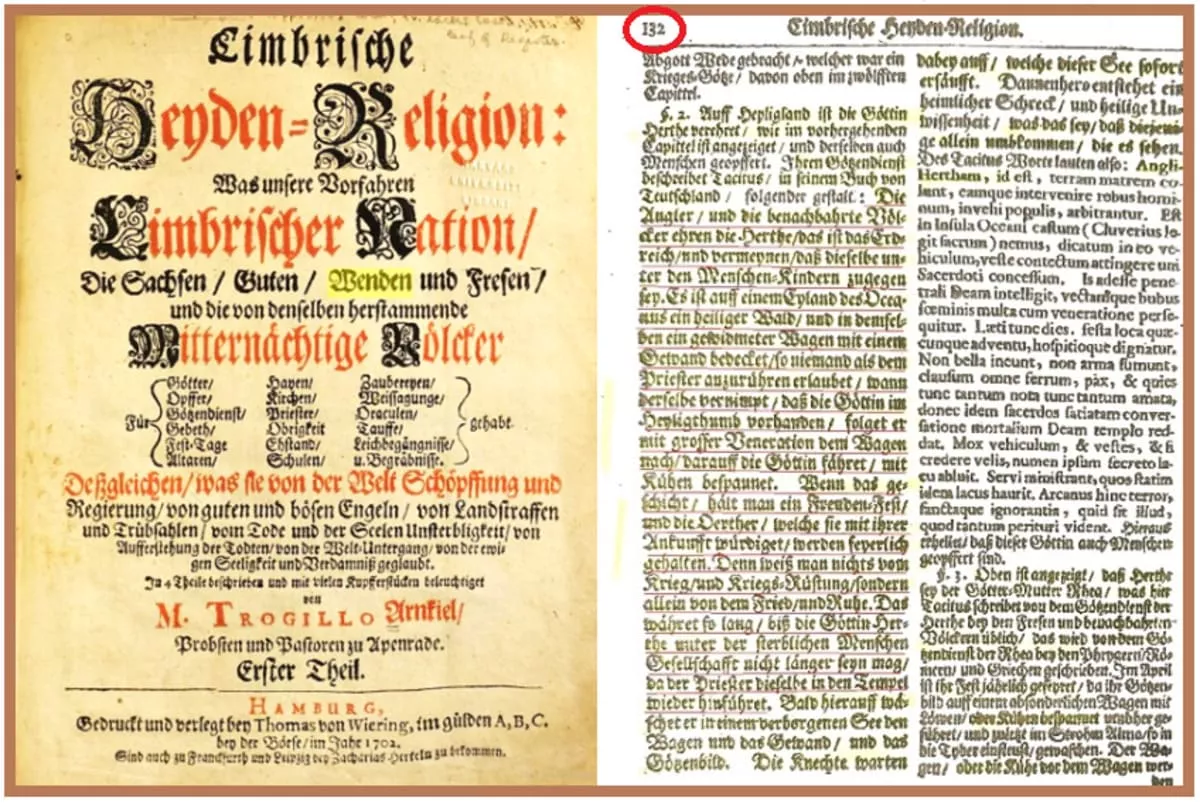 Cimbrische
Heyden-Religion:
Was unsere Vorfahren
Cimbrischer Nation/
Die Sachsen / Guten / Wenden und Fresen/
und die von denselben herstammende
Mitternächtige Völcker
Für
Götter/ Hayen/ Zaubereyen/
Opffer/ Kirchen/ Weissagunge/
Götzendienst/ Priester/ Oraculen/
Gebeth/ Obrigkeit Tauffe/
Fest-Tage Ehstand/ Leichbegängnisse/
Altaren/ Schulen/ u. Begräbnisse.
gehabt.
Deßgleichen/was sie von der Welt Schöpffung und
Regierung/von guten und bösen Engeln / von Landstraffen
und Trübsahlen / vom Tode und der Seelen Unsterbligkeit/von
Aufferstehung der Todten/von der Welt-Untergang/von der ewi-
gen Seeligkeit und Verdamniß geglaubt.
In 4 Theile beschrieben und mit vielen Kupfferstücken beleuchtiget
von
M. TROGILLO Arnkiel/
Probsten und Pastoren zu Apenrade.
Erster Theil.
HAMBURG,
Gedruckt und verlegt bey Thomas von Wiering, im gülden A, B, C.
bey der Börse/im Jahr 1702.
Sind auch zu Franckfurth und Leipzig bey Zacharias Herteln zu bekommen.
132 Cimbrische Heyden-Religion.
Abgott Wede gebracht / welcher war ein
Krieges-Götze / davon oben im zwölfften
Capittel.
§. 2. Auff Heyligland ist die Göttin
Herthe verehret / wie im vorhergehenden
Capittel ist angezeiget / und derselben auch
Menschen geopffert. Ihrem Götzendienst
beschreibet Tacitus / in seinem Buch von
Teutschland / folgender gestalt.: Die
Angler / und die benachbahrte Völ-
cker ehren die Herthe/das ist das Erd-
reich/und vermeynen/daß dieselbe un-
ter den Menschen-Kindern zugegen
sey. Es ist auff einem Eyland des Ocea-
nus ein heiliger Wald/ und in demsel-
ben ein gewidmeter Wagen mit einem
Gewand bedecket/so niemand als dem
Priester anzurühren erlaubet / wann
derselbe vernimpt / daß die Göttin im
Heyligthumb vorhanden / folget er
mit grosser Veneration dem Wagen
nach/ darauff die Göttin fähret / mit
Kühen bespannet. Wenn das ge-
schicht / hält man ein Freuden-Fest/
und die Oerther / welche sie mit ihrer
Ankunfft würdiget/werden feyerlich
gehalten. Denn weiß man nichts vom
Krieg/und Kriegs-Rüstung/sondern
allein von dem Fried/und Ruhe. Das
währet so lang/ biß die Göttin Her-
the unter der sterblichen Menschen
Gesellschafft nicht länger seyn mag/
da der Priester dieselbe in den Tempel
wieder hinführet. Bald hierauff wä-
schet er in einem verborgenen See den
Wagen und das Gewand / und das
Götzenbild. Die Knechte warten
dabey auff / welche dieser See sofort
ersäufft. Dannenhero entstehet ein
heimlicher Schreck / und heilige Un-
wissenheit / was das sey/ daß diejeni-
ge allein umbkommen / die es sehen.
Des Tacitus Worte lauten also: Angli-
Hertham, id est, terram matrem co-
lunt, eamque intervenire robus homi-
num, invehi populis, arbitrantur. Est
in Insula Oceani castum ( Cluverius le-
git sacrum ) nemus, dicatum in eo ve-
hiculum, veste contectum attingere uni
Sacerdoti concessum. Is adesse pene-
trali Deam intelligit, vectamque bubus
fœminis multa cum veneratione perse-
quitur. Læti tunc dies. festa loca quæ-
cunque adventu, hospitioque dignatur.
Non bella ineunt, non arma sumunt,
clausum omne ferrum, pax, & quies
tunc tantum nota tunc tantum amata,
donec idem sacerdos satiatam conver-
satione mortalium Deam templo red-
dat. Mox vehiculum, & vestes, & si
credere velis, numen ipsum secreto la-
cu abluit. Servi ministrant, quos statim
idem lacus haurit. Arcanus hinc terror,
sanctaque ignorantia, quid sit illud,
quod tantum perituri vident. Hieraus
erhellet/ daß dieser Göttin auch Menschen
geopffert sind.
§. 3. Oben ist angezeigt / daß Herthe
sey der Götter-Mutter Rhea / was hier
Tacitus schreibet von dem Götzendienst der
Herthe bey den Fresen und benachbahrten
Völckern üblich / das wird von dem Gö-
tzendienst der Rhea bey den Phrygern/Rö-
mern/ und Griechen geschrieben. Im April
ist ihr Fest jährlich gefeyret / da ihr Götzen-
bild auff einem absonderlichen Wagen mit
Löwen/ oder Kühen bespannet umbher ge-
führet / und zuletzt im Strohm Alma/so in
die Tyber einfleust/ gewaschen. Der Wa-
gen / oder die Kühe vor dem Wagen wer-
den